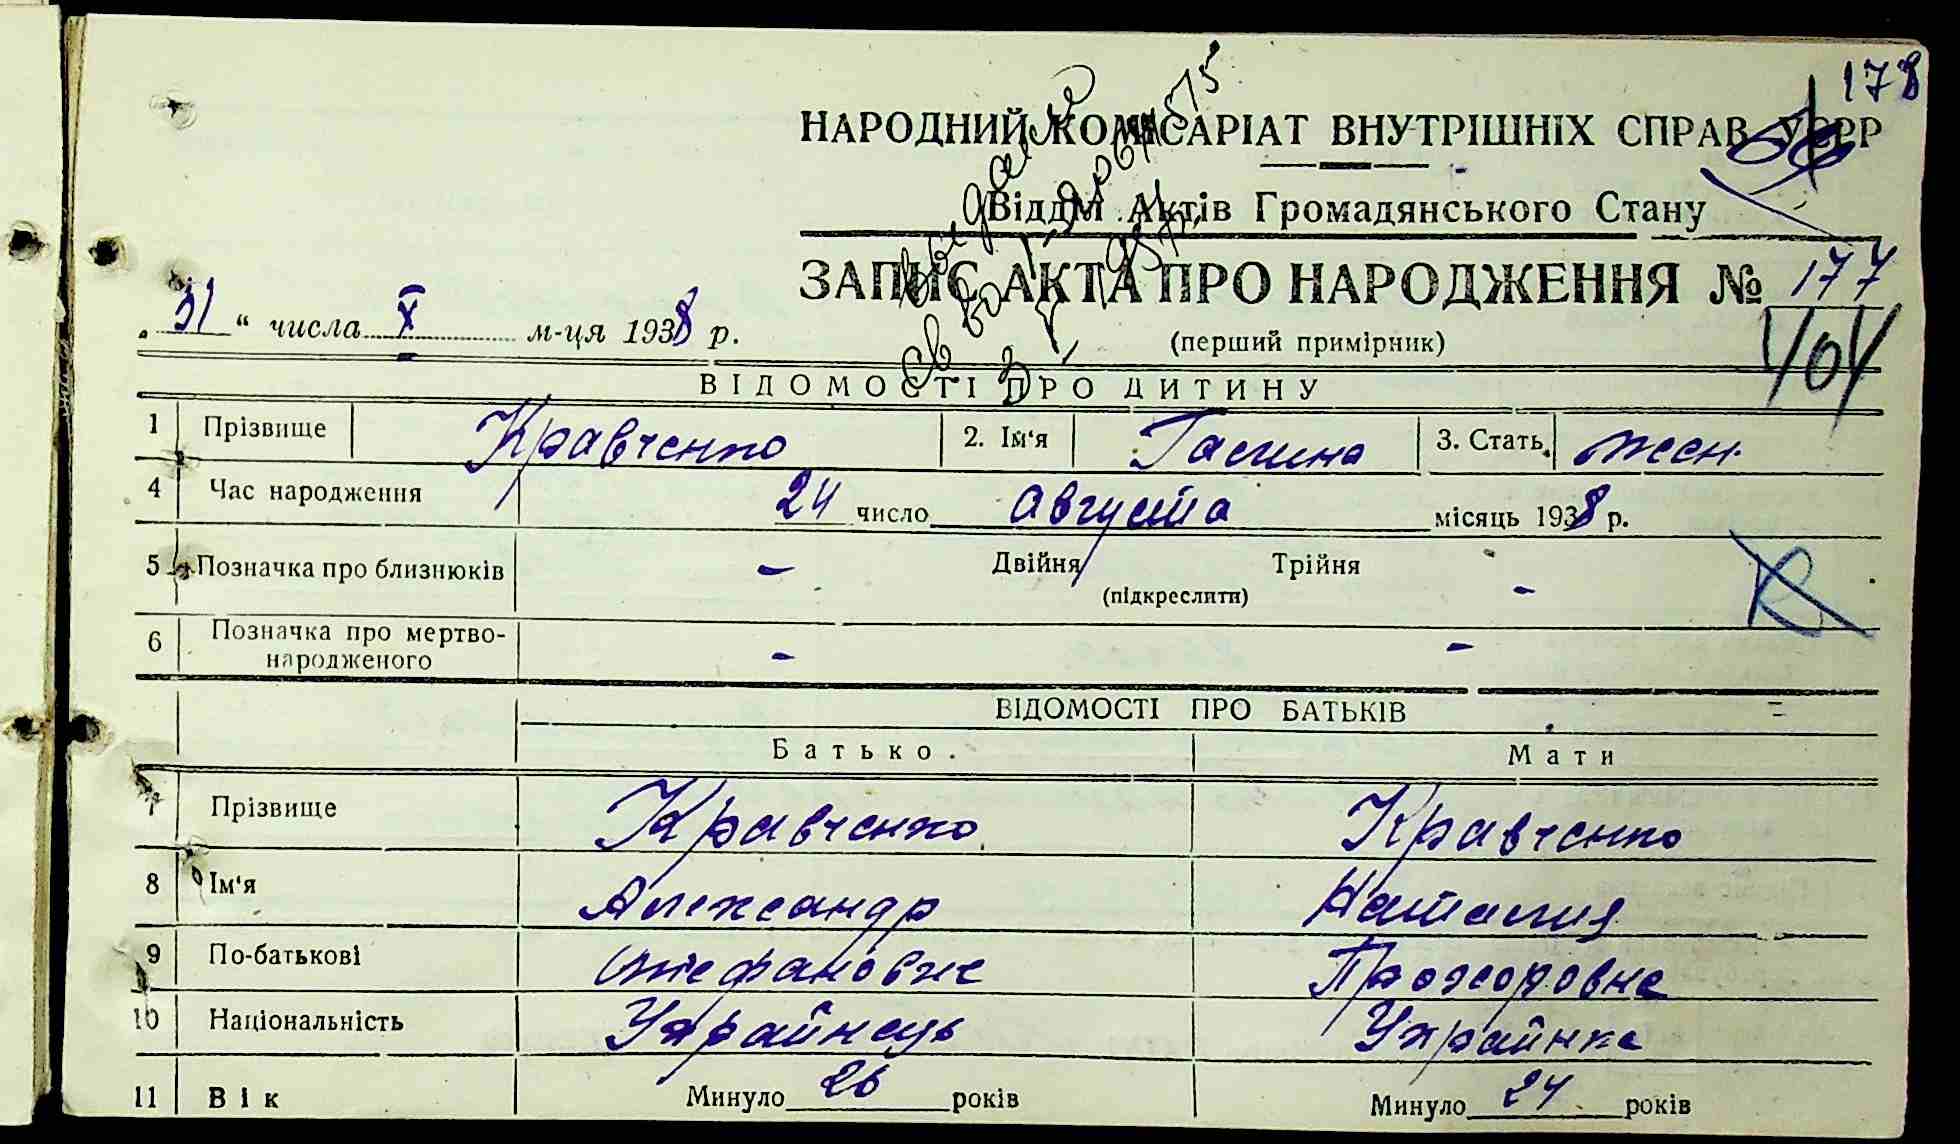 178
НАРОДНИЙ КОМІСАРІАТ ВНУТРІШНІХ СПРАВ УСРР
Відділ Актів Громадянського Стану
ЗАПИС АКТА ПРО НАРОДЖЕННЯ № 177
„31“ числа X м-ця 1938 р.
(перший примірник)
404
ВІДОМОСТІ ПРО ДИТИНУ
1 Прізвище Кравченко 2. Ім'я Галина 3. Стать жен.
4 Час народження 24 число августа місяць 1938 р.
5 Позначка про близнюків - Двійня Трійня -
(підкреслити)
6 Позначка про мертво-
народженого - -
ВІДОМОСТІ ПРО БАТЬКІВ
Батько. Мати
7 Прізвище Кравченко Кравченко
8 Ім'я Александр Наталия
9 По-батькові Прохоровна
10 Національність Украйнець Украйнка
11 Вік Минуло 26 років Минуло 24 років